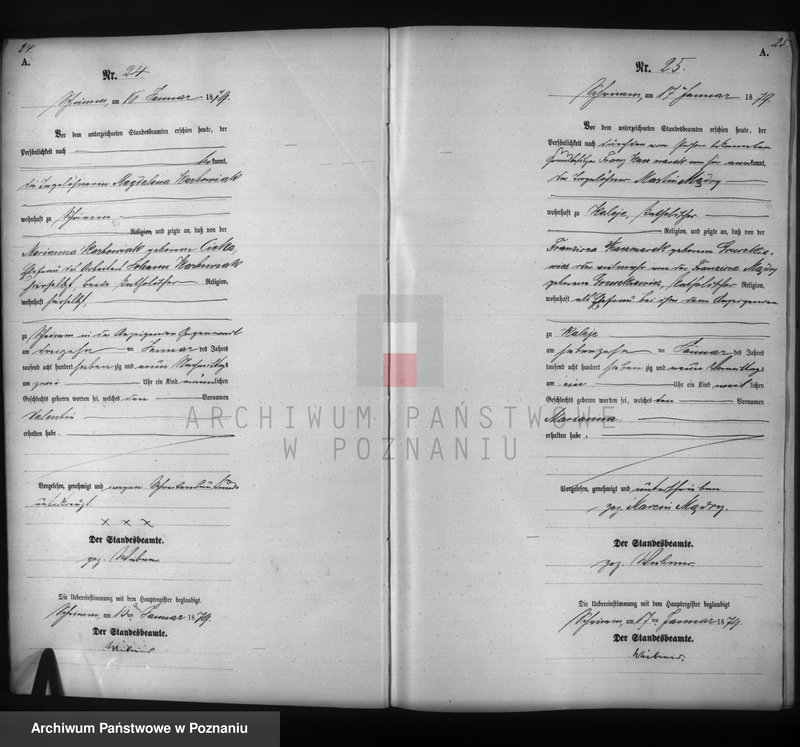 24.
A.
Nr. 24
Schrimm, am Januar 1879.
Vor dem unterzeichneten Standesbeamten erschien heute, der
Persönlichkeit nach
bekannt,
die Magdalena
wohnhaft zu Schrimm
Religion, und zeigte an, daß von der
Marianna geborenen
Ehefrau des Arbeiters Johann
hierselbst, beide katholischer Religion,
wohnhaft hierselbst,
zu Schrimm in der Anzeigenden Gegenwart
am dreizehn ten Januar des Jahres
tausend acht hundert sieben zig und neun Nachmittags
um zwei Uhr ein Kind männlichen
Geschlechts geboren worden sei, welches den Vornamen
Valentin
erhalten habe.
Vorgelesen, genehmigt und wegen
unterkreuzt.
x x x
Der Standesbeamte.
gez.
Die Uebereinstimmung mit dem Hauptregister beglaubigt
Schrimm, am Januar 1879.
Der Standesbeamte.
25.
A.
Nr. 25.
Schrimm, am 17 Januar 1879.
Vor dem unterzeichneten Standesbeamten erschien heute, der
Persönlichkeit nach durch den von Person bekannten
Franz anerkannt,
der Martin Mądry
wohnhaft zu katholischer
Religion, und zeigte an, daß von der
Francisca Kaczmarek geborenen
Francisca Mądry
geborenen katholischer Religion,
wohnhaft als Ehefrau bei ihm dem Anzeigenden
zu
am siebenzehn ten Januar des Jahres
tausend acht hundert sieben zig und neun Vormittags
um ein Uhr ein Kind weib lichen
Geschlechts geboren worden sei, welches den Vornamen
Marianna.
erhalten habe.
Vorgelesen, genehmigt und unterschrieben
gez. Marcin Mądry.
Der Standesbeamte.
gez.
Die Uebereinstimmung mit dem Hauptregister beglaubigt
Schrimm, am 17ten Januar 1879.
Der Standesbeamte.
ARCHIWUM PAŃSTWOWE
W POZNANIU
Archiwum Państwowe w Poznaniu